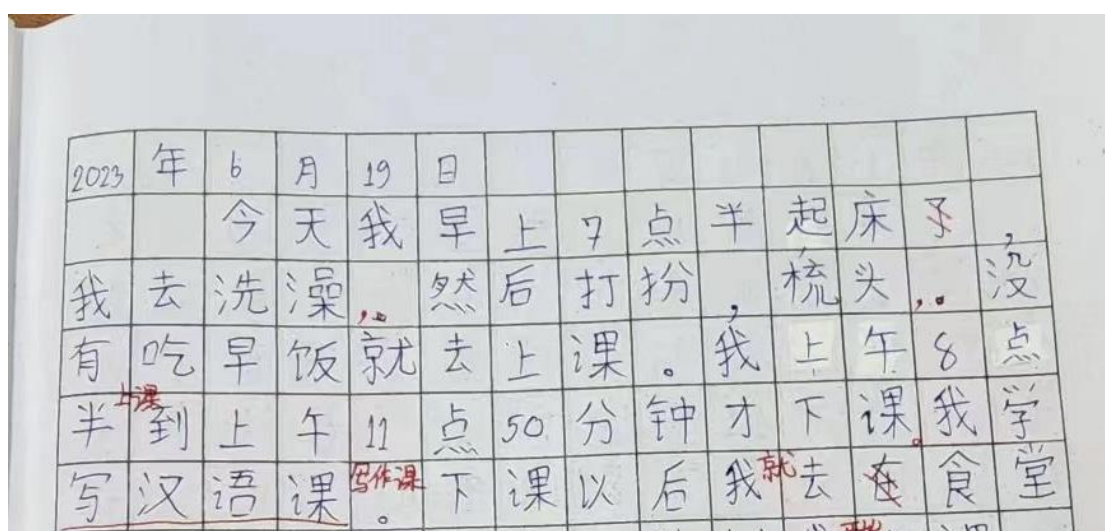 2023年6月19日
今天我早上7点半起床了,
我去洗澡,。然后打扮,梳头,。没
有吃早饭就去上课。我上午8点
半上课到上午11点50分钟才下课。我学
写汉语课写作课。下课以后我就去在食堂